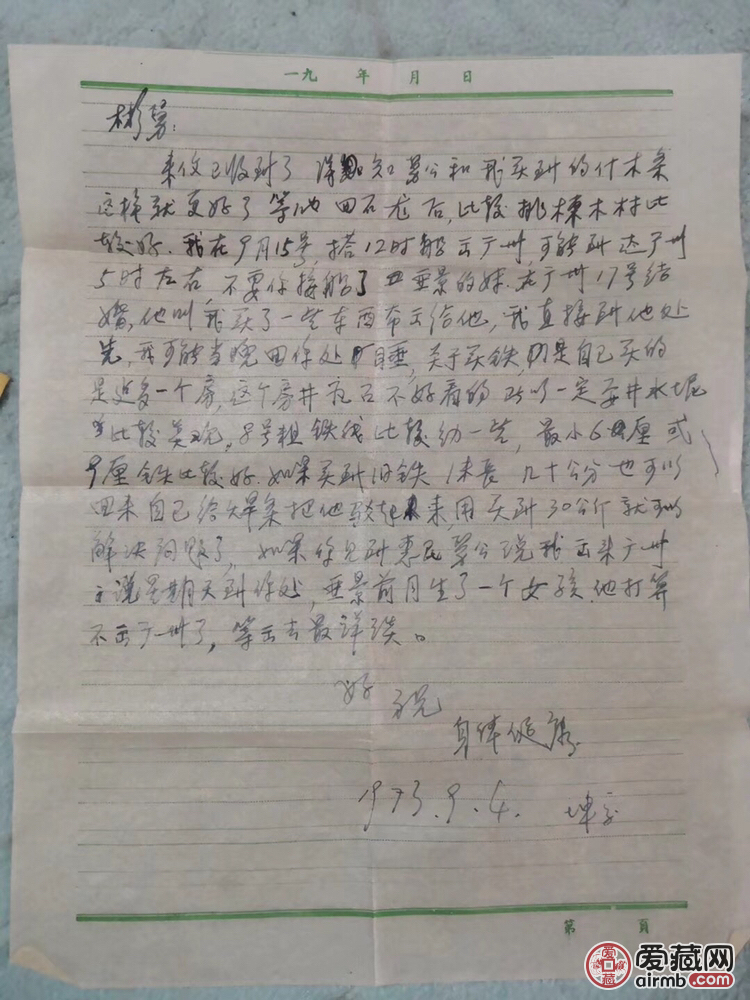 一九 年 月 日
彬舅：
来信已收到了 详细知舅公和我买到的什木条
这样就更好了等他回石龙后，比较排楝木材比
较好．我在9月15号，搭12时船去广州，可能到达广州
5时左右，不要你接船了 垂景的妹．在广州17号结
婚，他叫我买了一些东西带去给他，我直接到他处
先，我可能当晚回你处睡，关于买铁，是自己买的
是近多一个房，这个房井 不好看的 所以一定要井水
比较美观，8号粗铁线比较幼一些，最小6厘或
9厘铁比较好．如果买到旧铁1米长几十公分也可以
回来自己给焊条把他驳起来，用买到30公斤就可以
解决问题了，如果你见到惠 舅公说我去来广州
说星期天到你处，垂景前月生了一个女孩．他打算
不去广州了，等去去最详谈。
好 祝
身体健康
1973.9.4. 坤
第 頁
爱藏网
airmb.com